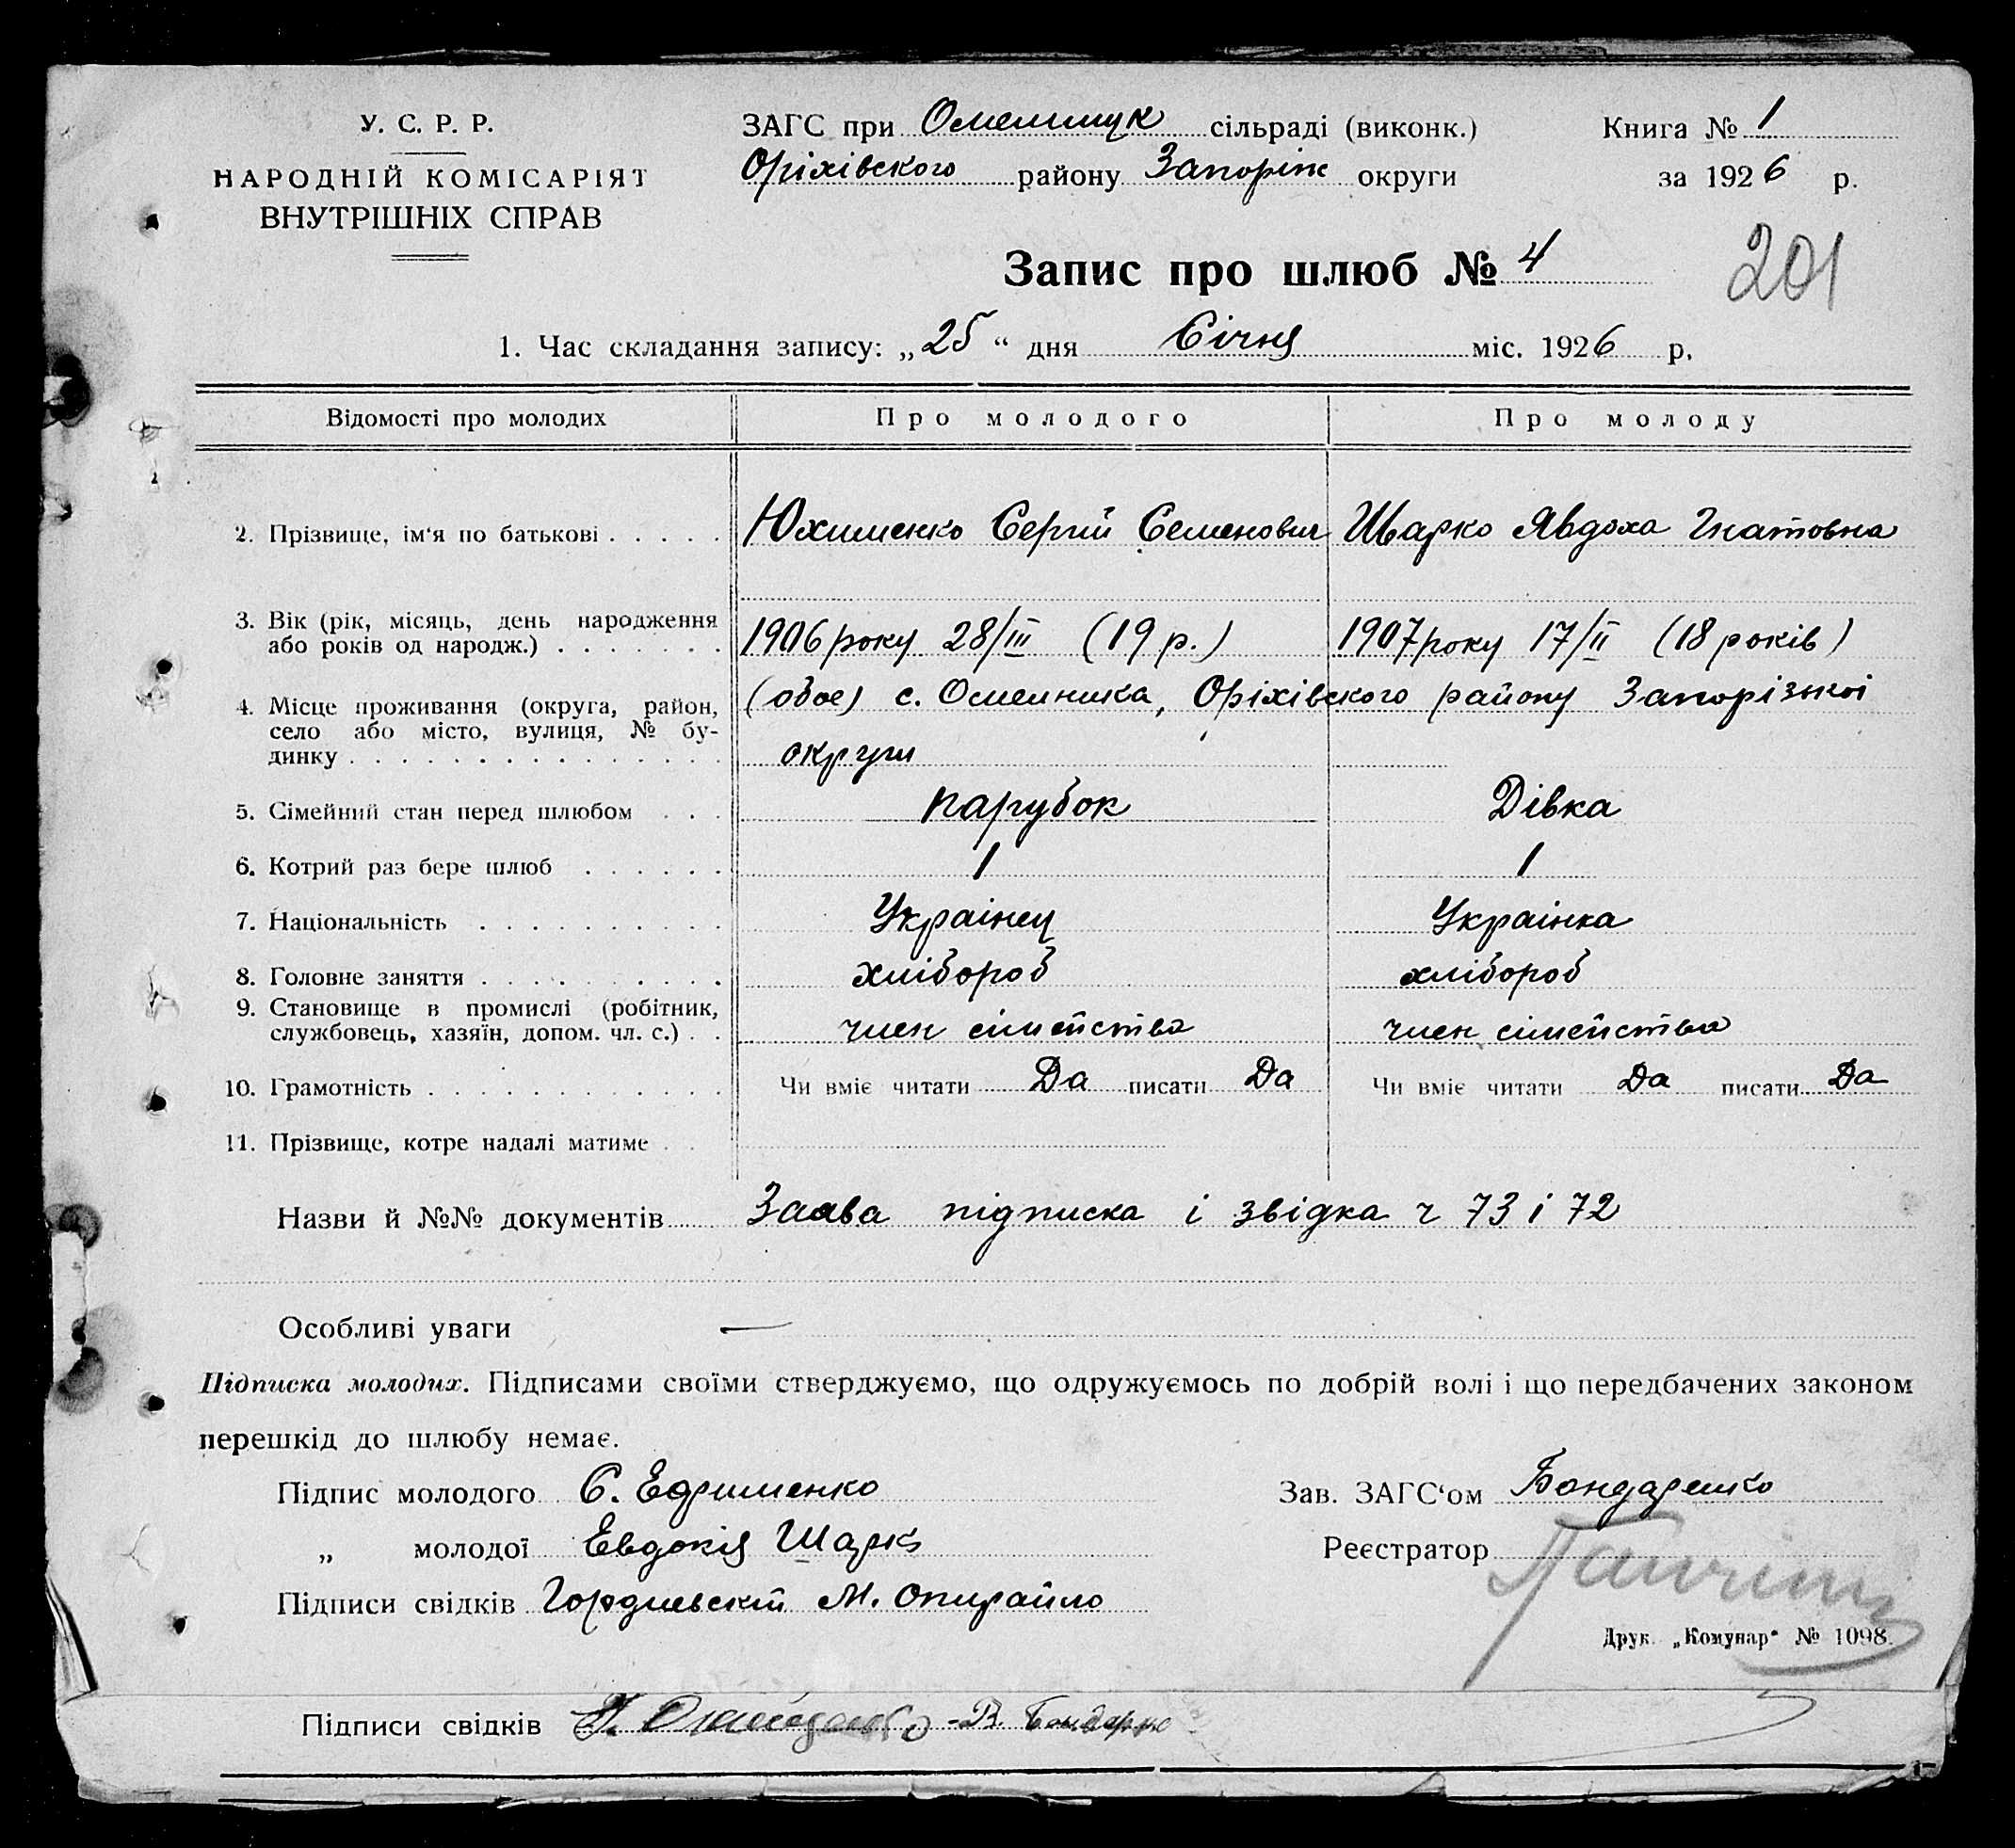 У. С. Р. Р.
НАРОДНІЙ КОМІСАРІЯТ
ВНУТРІШНІХ СПРАВ
ЗАГС при Омельницк сільраді (виконк.)
Оріхівского району Запоріж округи
Книга № 1
за 1926 р.
Запис про шлюб № 4
201
1. Час складання запису: „25“ дня Січня міс. 1926 р.
Відомості про молодих Про молодого Про молоду
2. Прізвище, ім‘я по батькові Юхименко Сергій Семенович Шарко Явдоха Гнатовна
3. Вік (рік, місяць, день народження
або років од народж.) 1906 року 28/III (19 р.) 1907 року 17/II (18 років)
4. Місце проживання (округа, район, (обое) с. Омельника, Оріхівского району Запорізькоі
село або місто, вулиця, № бу-
динку округи
5. Сімейний стан перед шлюбом парубок Дівка
6. Котрий раз бере шлюб 1 1
7. Національність Украінец Украінка
8. Головне заняття хлібороб хлібороб
9. Становище в промислі (робітник,
службовець, хазяїн, допом. чл. с.) член сімейства член сімейства
10. Грамотність Чи вміє читати Да писати Да Чи вміє читати Да писати Да
11. Прізвище, котре надалі матиме
Назви й №№ документів Заава підписка і звідка ч 73 і 72
Особливі уваги —
Підписка молодих. Підписами своїми стверджуємо, що одружуємось по добрій волі і що передбачених законом
перешкід до шлюбу немає.
Підпис молодого С. Ефименко
Зав. ЗАГС‘ом Бондаренко
„ молодої Евдокія Шарк
Реєстратор
Підписи свідків М.
Друк. „Комунар“ № 1098.
Підписи свідків В.